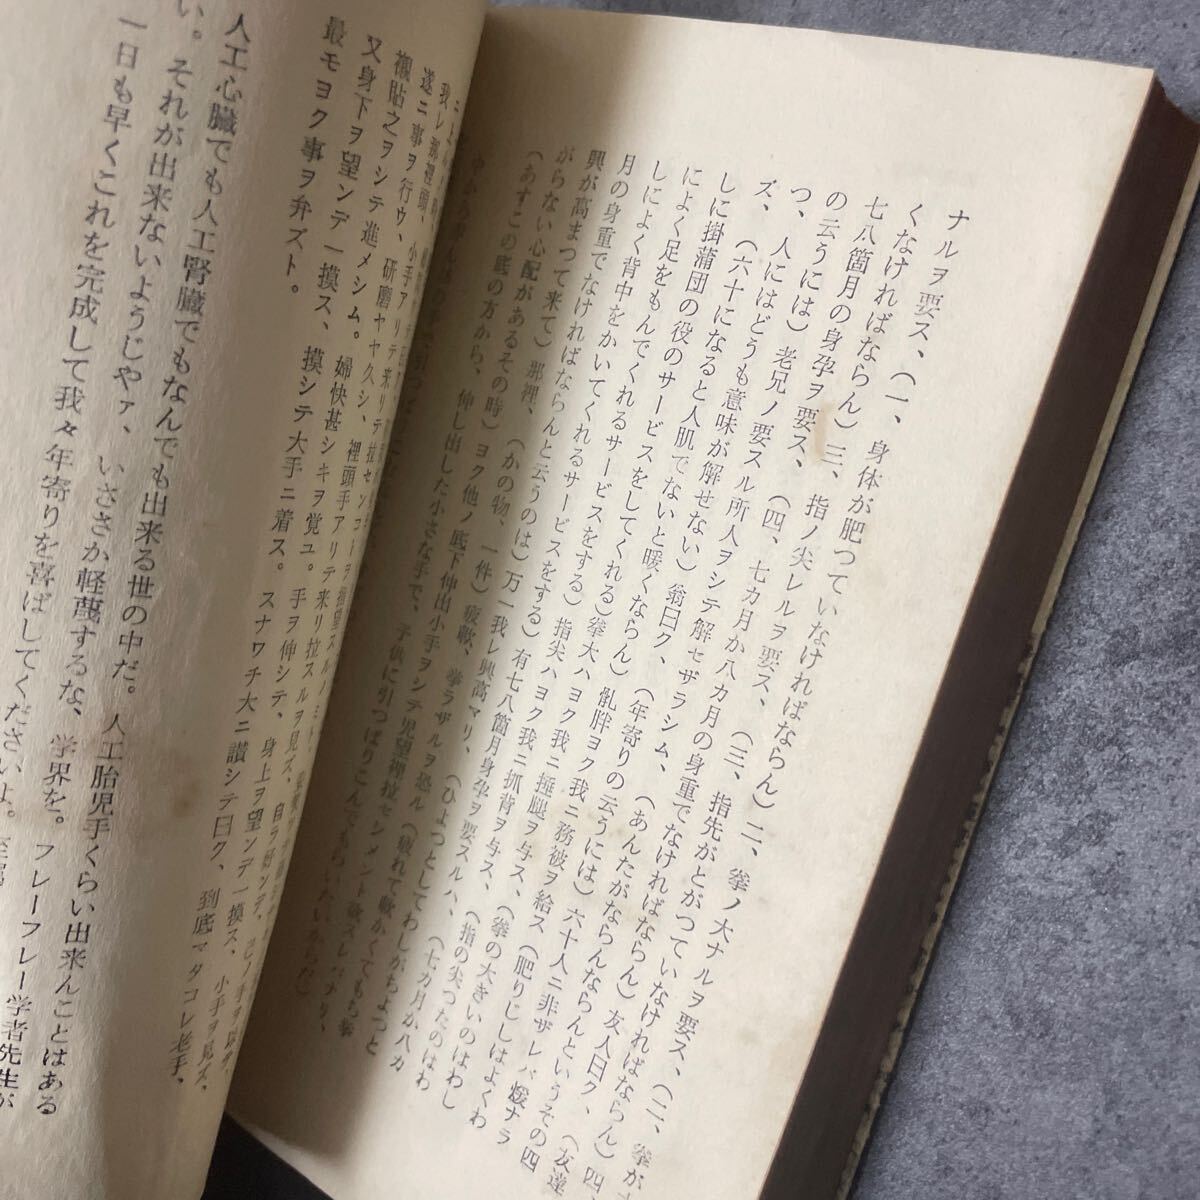 ナルヲ要ス、（一、身体が肥つていなければならん）二、拳ノ大ナルヲ要ス、（二、拳が
くなければならん）三、指ノ尖レルヲ要ス、（三、指先がとがつていなければならん）四、
七八箇月の身孕ヲ要ス、（四、七カ月か八カ月の身重でなければならん）友人曰ク、（友達
の云うには）老兄ノ要スル所人ヲシテ解セザラシム、（あんたがならんならんというその四
つ、人にはどうも意味が解せない）翁曰ク、（年寄りの云うには）六十人ニ非ザレバ煖ナラ
ズ、（六十になると人肌でないと暖くならん）肥胖ヨク我ニ務被ヲ給ス（肥りじしはよくわ
しに掛蒲団の役のサービスをしてくれる）拳大ハヨク我ニ捶腿ヲ与ス、（拳の大きいのはわし
によく足をもんでくれるサービスをする）指尖ハヨク我ニ抓背ヲ与ス、（指の尖つたのはわ
しによく背中をかいてくれるサービスをする）有七八箇月身孕ヲ要スルハ、（七カ月か八カ
月の身重でなければならんと云うのは）万一我レ興高マリ、（ひよつとしてわしがちよつと
興が高まつて来て）那裡、（かの物、一件）疲軟、挙ラザルヲ恐ル（疲れて軟かくてもち挙
がらない心配があるその時）ヨク他ノ底下伸出小手ヲシテ児望裡拉セシメント欲スレバナリ、
（あすこの底の方から、伸し出した小さな手で、子供に引つぱりこんでもらいたいからだ）
遂ニ事ヲ行ウ、研磨ヤヤ久シ、裡頭手アリテ来リ拉スルヲ見ズ、
襯貼之ヲシテ進メシム。婦快甚シキヲ覚ユ。手ヲ伸シテ、身上ヲ望ンデ一摸ス、小手ヲ見ズ、
又身下ヲ望ンデ一摸ス、摸シテ大手ニ着ス。スナワチ大ニ讃シテ曰ク、到底マタコレ老手、
最モヨク事ヲ弁ズト。
人工心臓でも人工腎臓でもなんでも出来る世の中だ。人工胎児手くらい出来んことはある
い。それが出来ないようじやァ、いささか軽蔑するな、学界を。フレーフレー学者先生が
一日も早くこれを完成して我々年寄りを喜ばしてくださいよ。